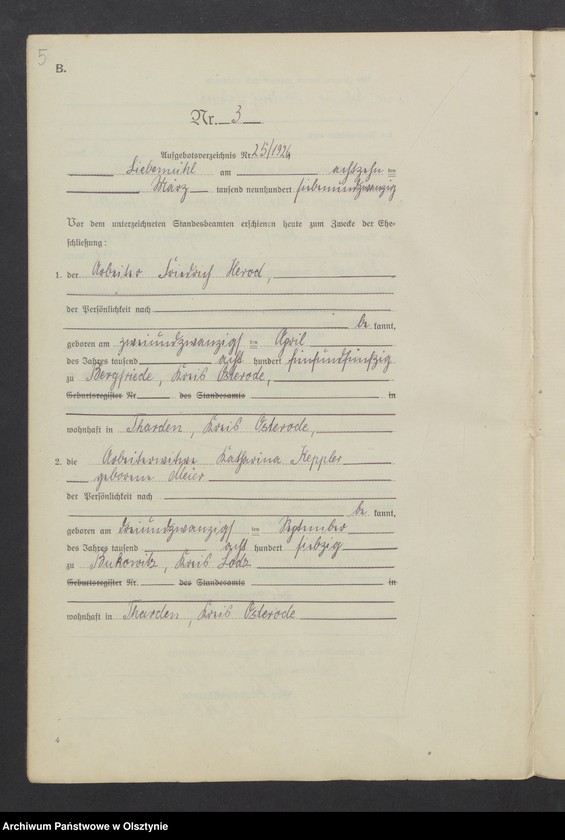 5
B.
Nr. 3
Aufgebotsverzeichnis Nr. 25/1926
Liebemühl am achtzehn ten
März tausend neunhundert siebenundzwanzig
Vor dem unterzeichneten Standesbeamten erschienen heute zum Zwecke der Ehe-
schließung:
1. der Arbeiter Friedrich Herod,
der Persönlichkeit nach
be kannt,
geboren am zweiundzwanzigst ten April
des Jahres tausend acht hundert fünfundfünfzig
zu Bergfriede, Kreis Osterode,
Geburtsregister Nr. des Standesamts in
wohnhaft in Tharden, Kreis Osterode,
2. die Arbeiterwitwe Katharina Keppler
geborene Meier
der Persönlichkeit nach
be kannt,
geboren am dreiundzwanzigst ten September
des Jahres tausend acht hundert siebzig
zu Bukowitz, Kreis Lodz
Geburtsregister Nr. des Standesamts in
wohnhaft in Tharden, Kreis Osterode
4
Archiwum Państwowe w Olsztynie